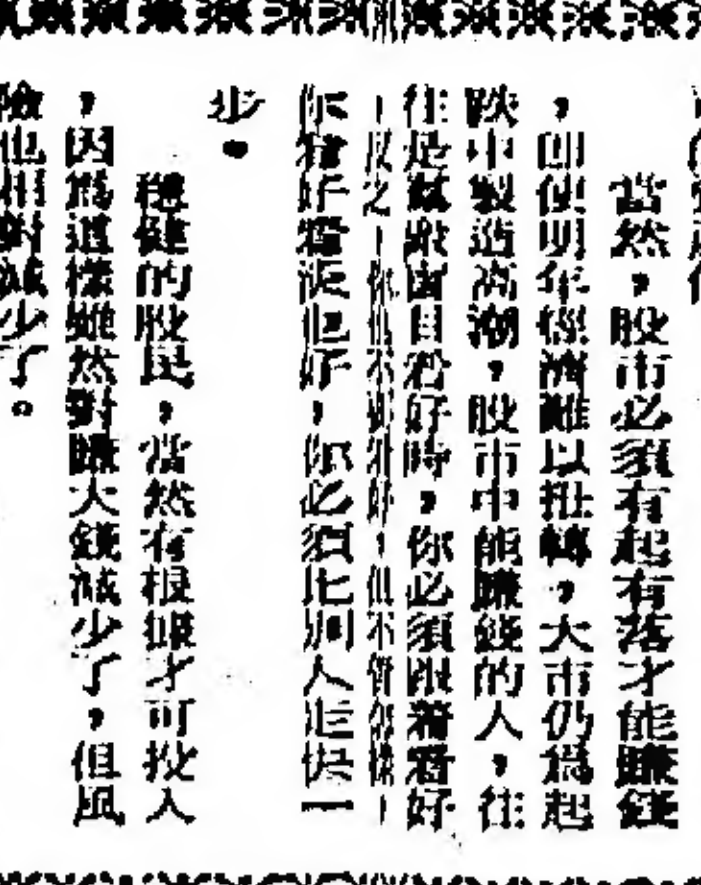 當然，股市必須有起有落才能賺錢
，即使明年經濟難以扭轉，大市仍爲起
跌中製造高潮，股市中能賺錢的人，往
往是羣衆盲目看好時，你必須跟着看好
，反之，你也不必看好，但不管怎樣，
你看好看淡也好，你必須比別人走快一
步。
穩健的股民，當然有根據才可投入
，因爲這樣雖然對賺大錢減少了，但風
險也相對減少了。